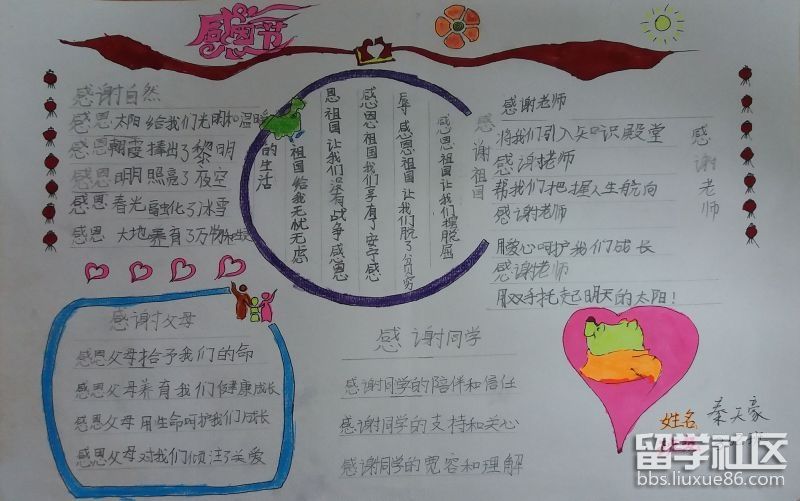 感恩节
感谢自然
感恩太阳给我们光明和温暖
感恩朝霞捧出了黎明
感恩明月照亮了夜空
感恩春光融化了冰雪
感恩大地养育了万物
感谢祖国
感恩祖国让我们摆脱屈
辱感恩祖国让我们脱了贫穷
感恩祖国我们享有了安宁感
恩祖国让我们没有战争感恩
祖国给我无忧无虑
的生活
感谢老师
感谢老师
将我们引入知识殿堂
感谢老师
帮我们把握人生航向
感谢老师
用爱心呵护我们成长
感谢老师
用双手托起明天的太阳!
感谢父母
感恩父母给予我们的命
感恩父母养育我们健康成长
感恩父母用生命呵护我们成长
感恩父母对我们倾注了关爱
感谢同学
感谢同学的陪伴和信任
感谢同学的支持和关心
感谢同学的宽容和理解
姓名 秦天豪
留学社区
bbs.liuxue86.com